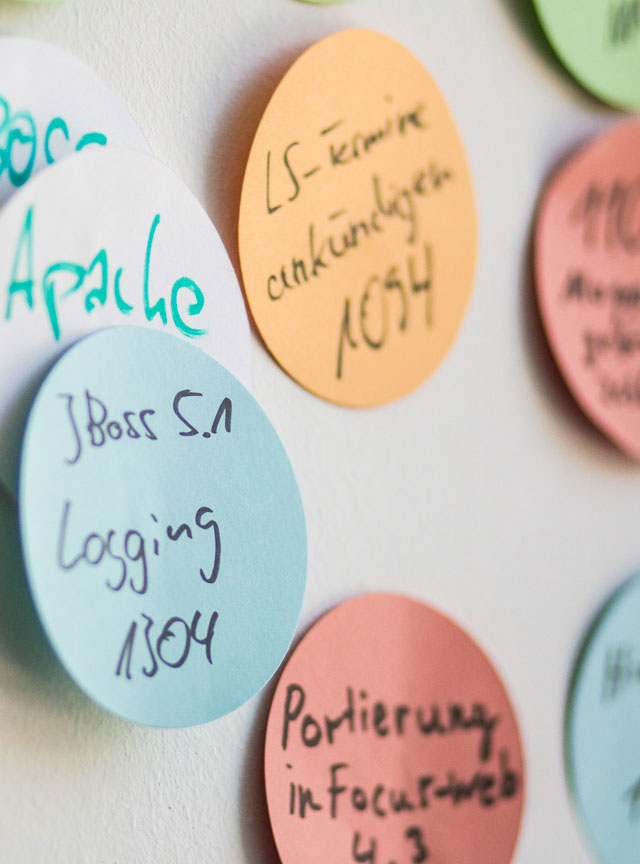 Boss
Apache
JBoss 5.1
Logging
1304
LS-Termine
ankündigen
1094
110
Portierung
in Focus-web
4.3